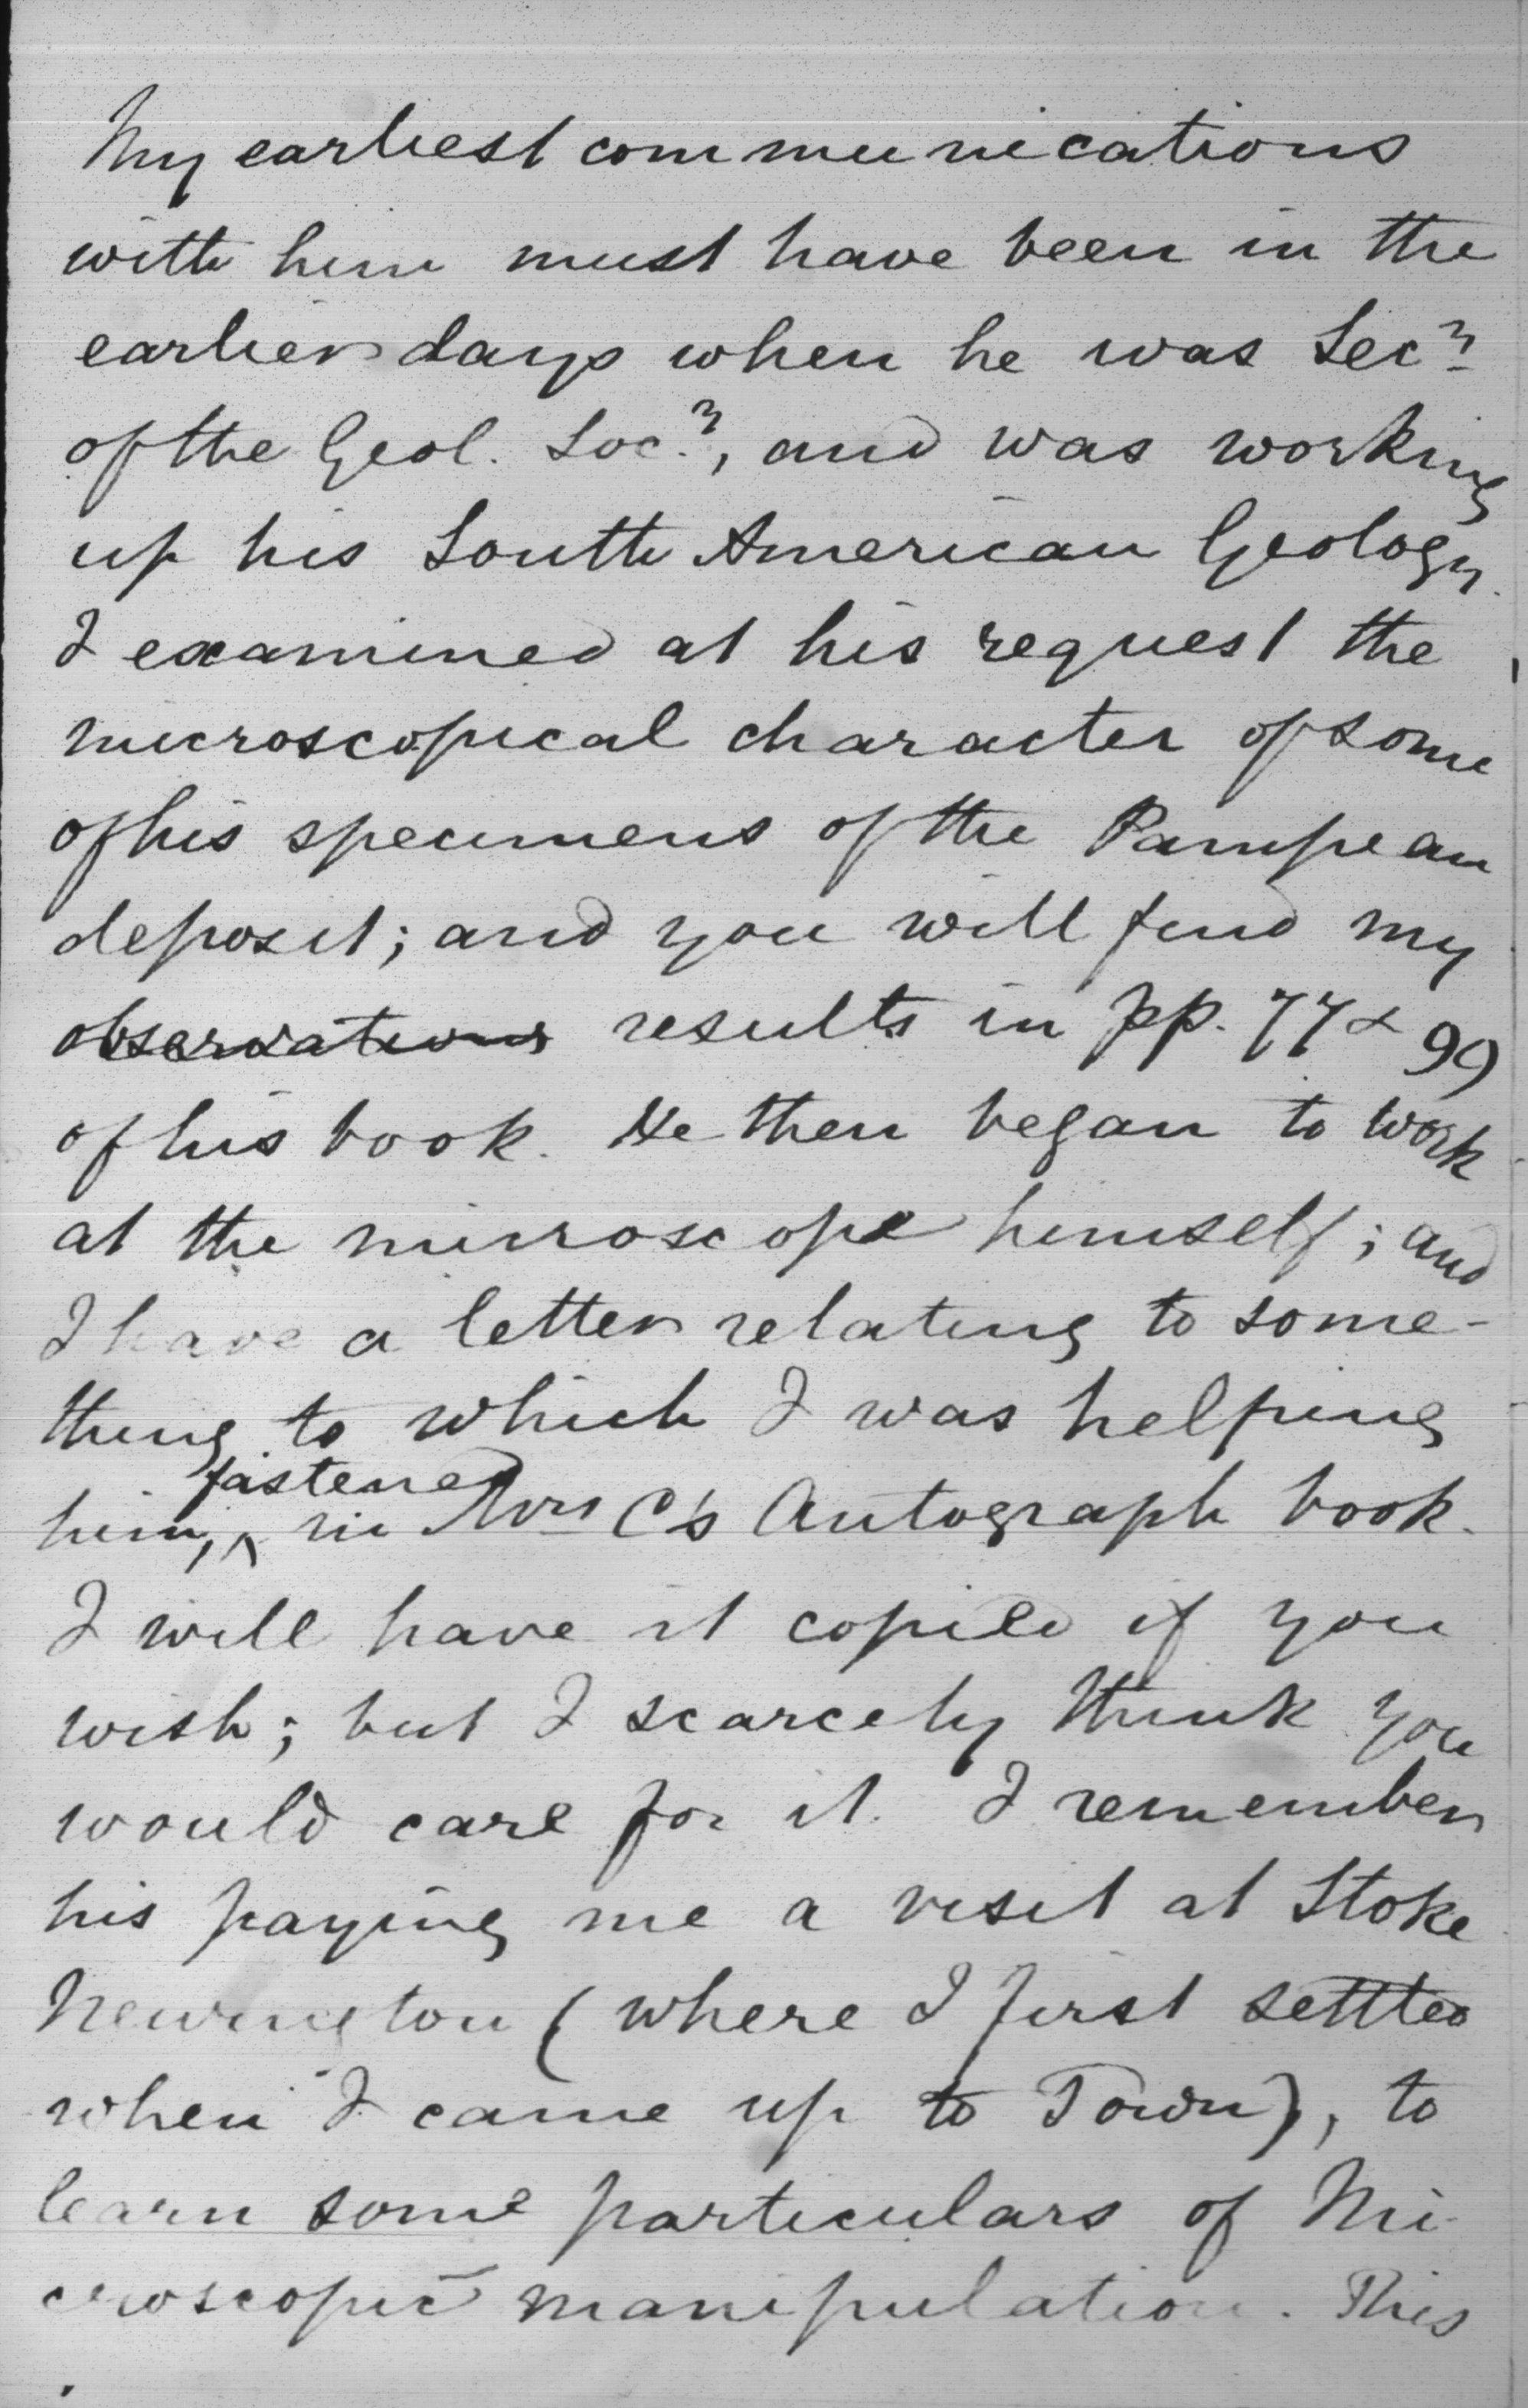 My earliest communications
with him must have been in the
earlier days when he was Secy
of the Geol. Socy, and was working
up his South American Geology.
I examined at his request the
microscopical character of some
of his specimens of the Pampean
deposit; and you will find my
observations results in pp. 77 & 99
of his book. He then began to work
at the microscope himself; and
I have a letter relating to some-
thing to which I was helping
fastened
him, ^ in Mrs C's Autograph book.
I will have it copied if you
wish; but I scarcely think you
would care for it. I remember
his paying me a visit at Stoke
Newington (where I first settled
when I came up to Town), to
learn some particulars of Mi-
croscopic manipulation. This